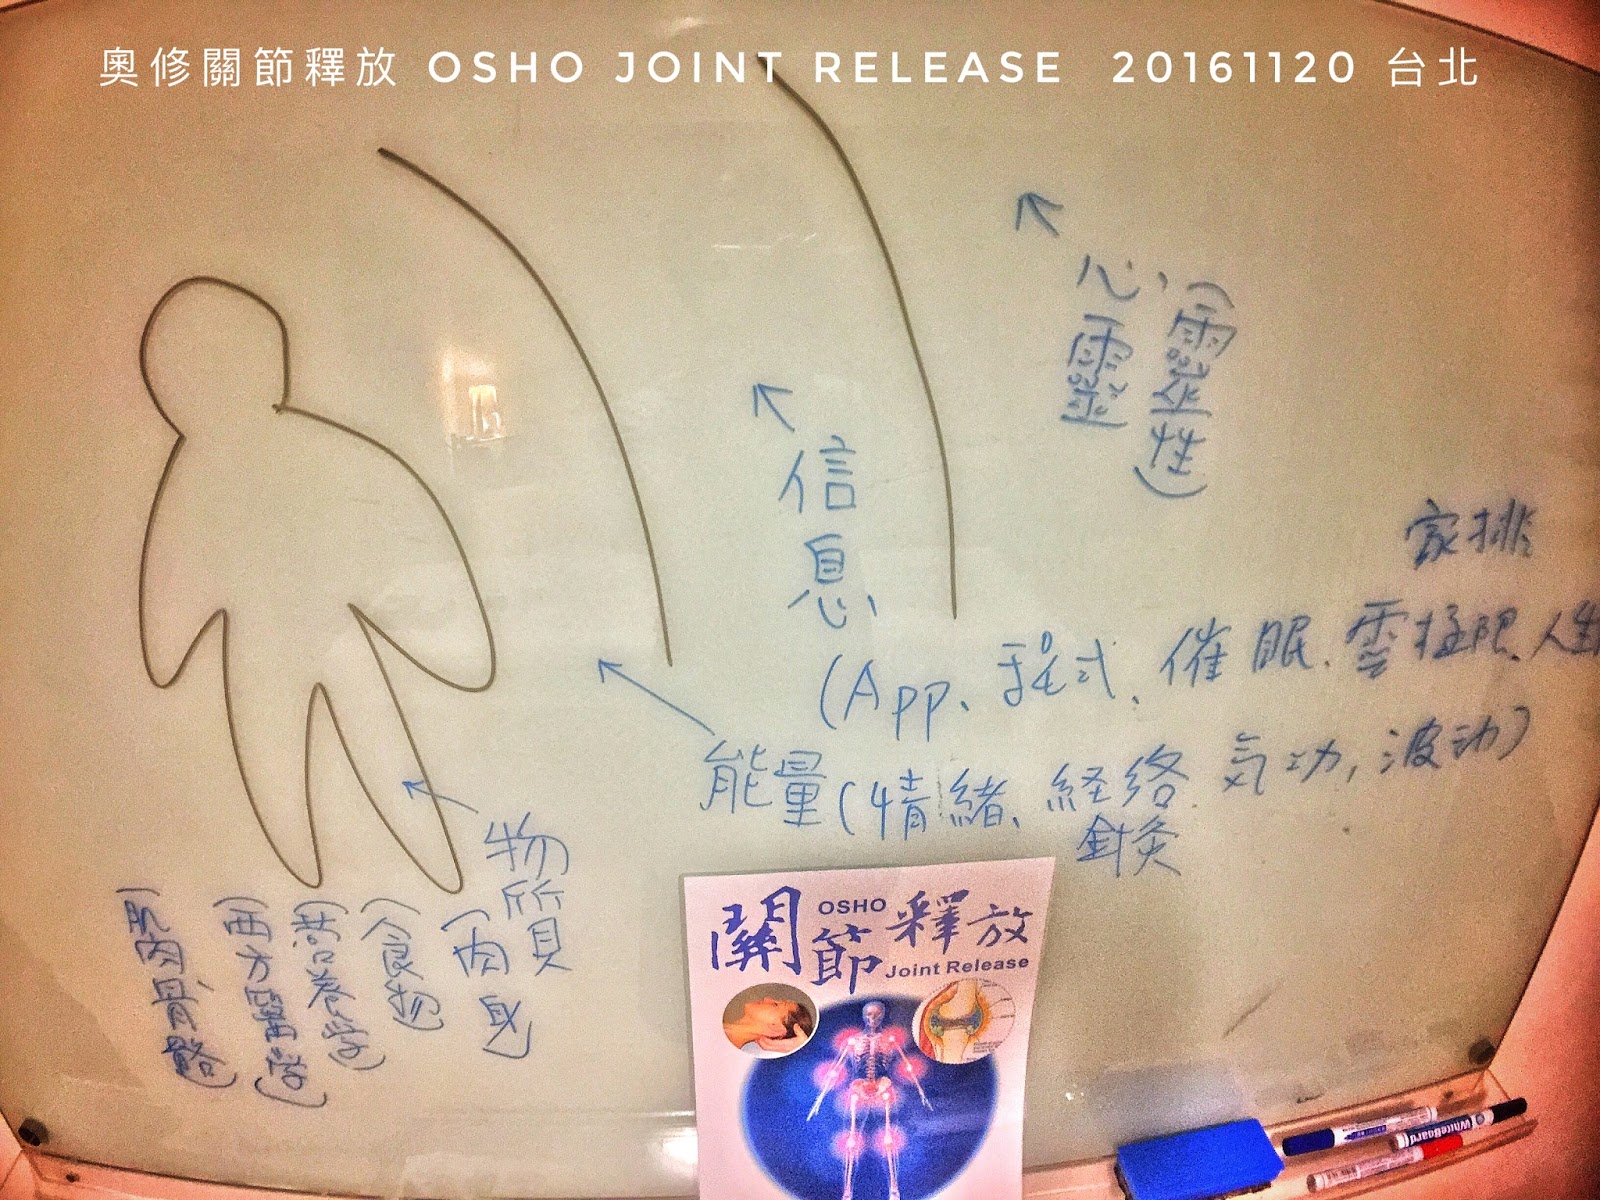 奧修關節釋放 OSHO JOINT RELEASE 20161120 台北
心靈
(靈性)
信息
家排
(App、程式、催眠、零極限、人生
能量(情緒、経络 気功, 波动)
鍼灸
物質
(肉身)
(食物)
(营养学)
(西方醫學)
(肌肉骨骼)
關節釋放
OSHO
Joint Release
WhiteBoard